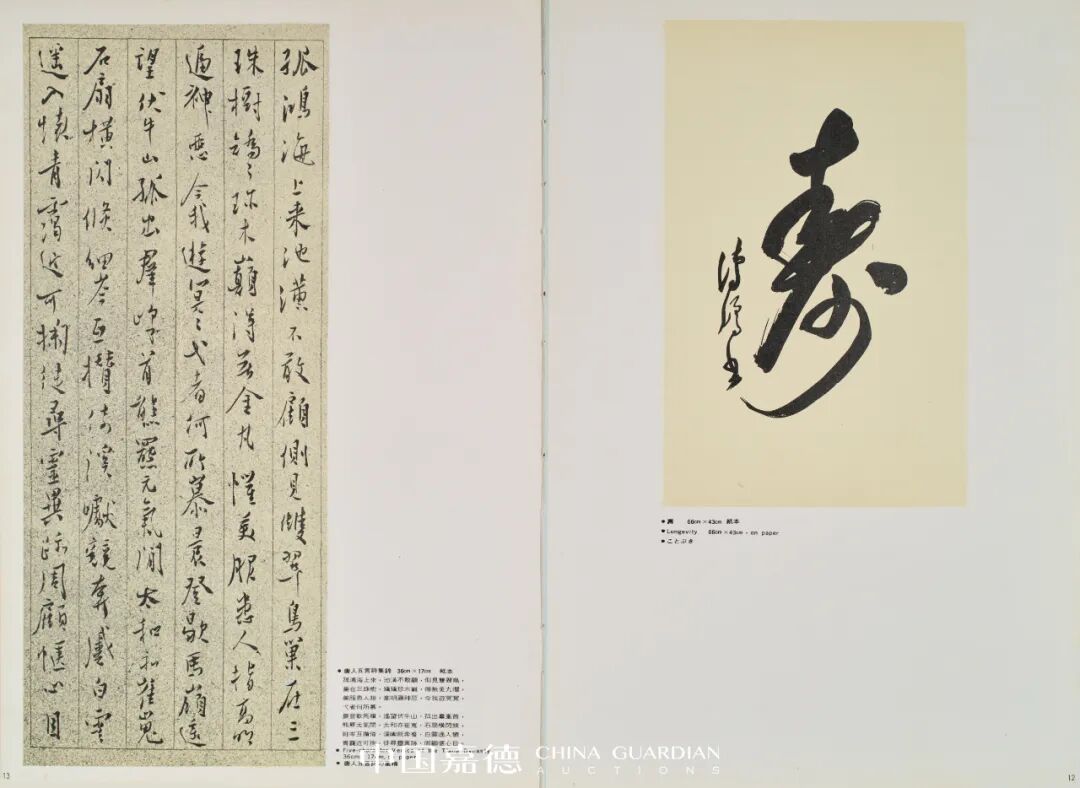 孤鴻海上来池潢不敢顧側見雙翠鳥巢在三
珠樹矯〻珍木巔得無金丸懼美服患人指高明
逼神惡今我遊冥〻弋者何所慕晨登歇馬嶺遙
望伏牛山孤出羣峰首熊羆元氣間太和崔嵬
石扇橫閃倏細岑互攢倚溪巘競奔蹙白雲
遙入懷青靄近可掬徒尋靈異跡周顧愜心目
●唐人五言詩集錦 36cm×17cm 紙本
孤鴻海上來，池潢不敢顧，側見雙翠鳥，
巢在三珠樹，矯矯珍木巔，得無金丸懼，
美服患人指，高明逼神惡，今我遊冥冥，
弋者何所慕。
晨登歇馬嶺，遙望伏牛山，孤出羣峯首，
元氣間，太和亦崔嵬，石扇橫閃倏，
細岑互攢倚，溪巘競奔蹙，白雲遙入懷，
青靄近可掬，徒尋靈異跡，周顧愜心目。
36cm×17cm on paper
●唐人五言詩
13
壽
書
●壽 66cm×43cm 紙本
●Longevity 66cm×43cm・on paper
●ことぶき
12
中国嘉德 CHINA GUARDIAN
AUCTIONS